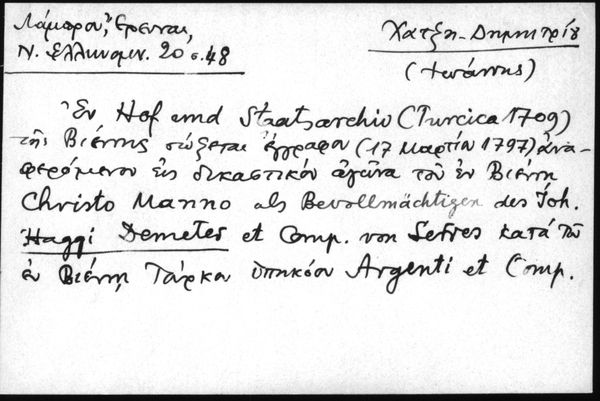 Λάμπρου, Ἔρευναι,
Ν. Ἑλληνομν. 20 σ. 48
Χατζη-Δημητρίȣ
(Ἰωάννης)
Ἐν Hof und Staatsarchiv (Turcica 1709)
τῆς Βιέννης σώζεται ἔγγραφον (17 Μαρτίου 1797) ἀνα-
φερόμενον εἰς δικαστικόν ἀγῶνα τοῦ ἐν Βιέννῃ
Christo Manno als Bevollmächtigen des Joh.
Haggi Demeter et Comp. von Serres κατά τοῦ
ἐν Βιέννῃ Τούρκου ὑπηκόου Argenti et Comp.